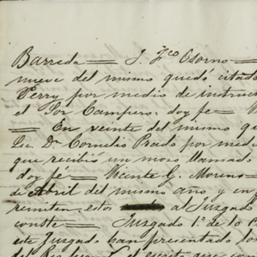 Barreda — J. Fco Osorno —
nueve del mismo quedó citado
Perry por medio de instruc
el Sor Campero: doy fe —
— En veinte del mismo q
Lic. Dn Cornelio Prado por med
que recibió un mozo llamado
doy fé — Vicente G. Moreno
de Abril del mismo año y en
remiten estos al Juzgado
conste — Juzgado 1º de lo C
este Juzgado han presentado lo
que con